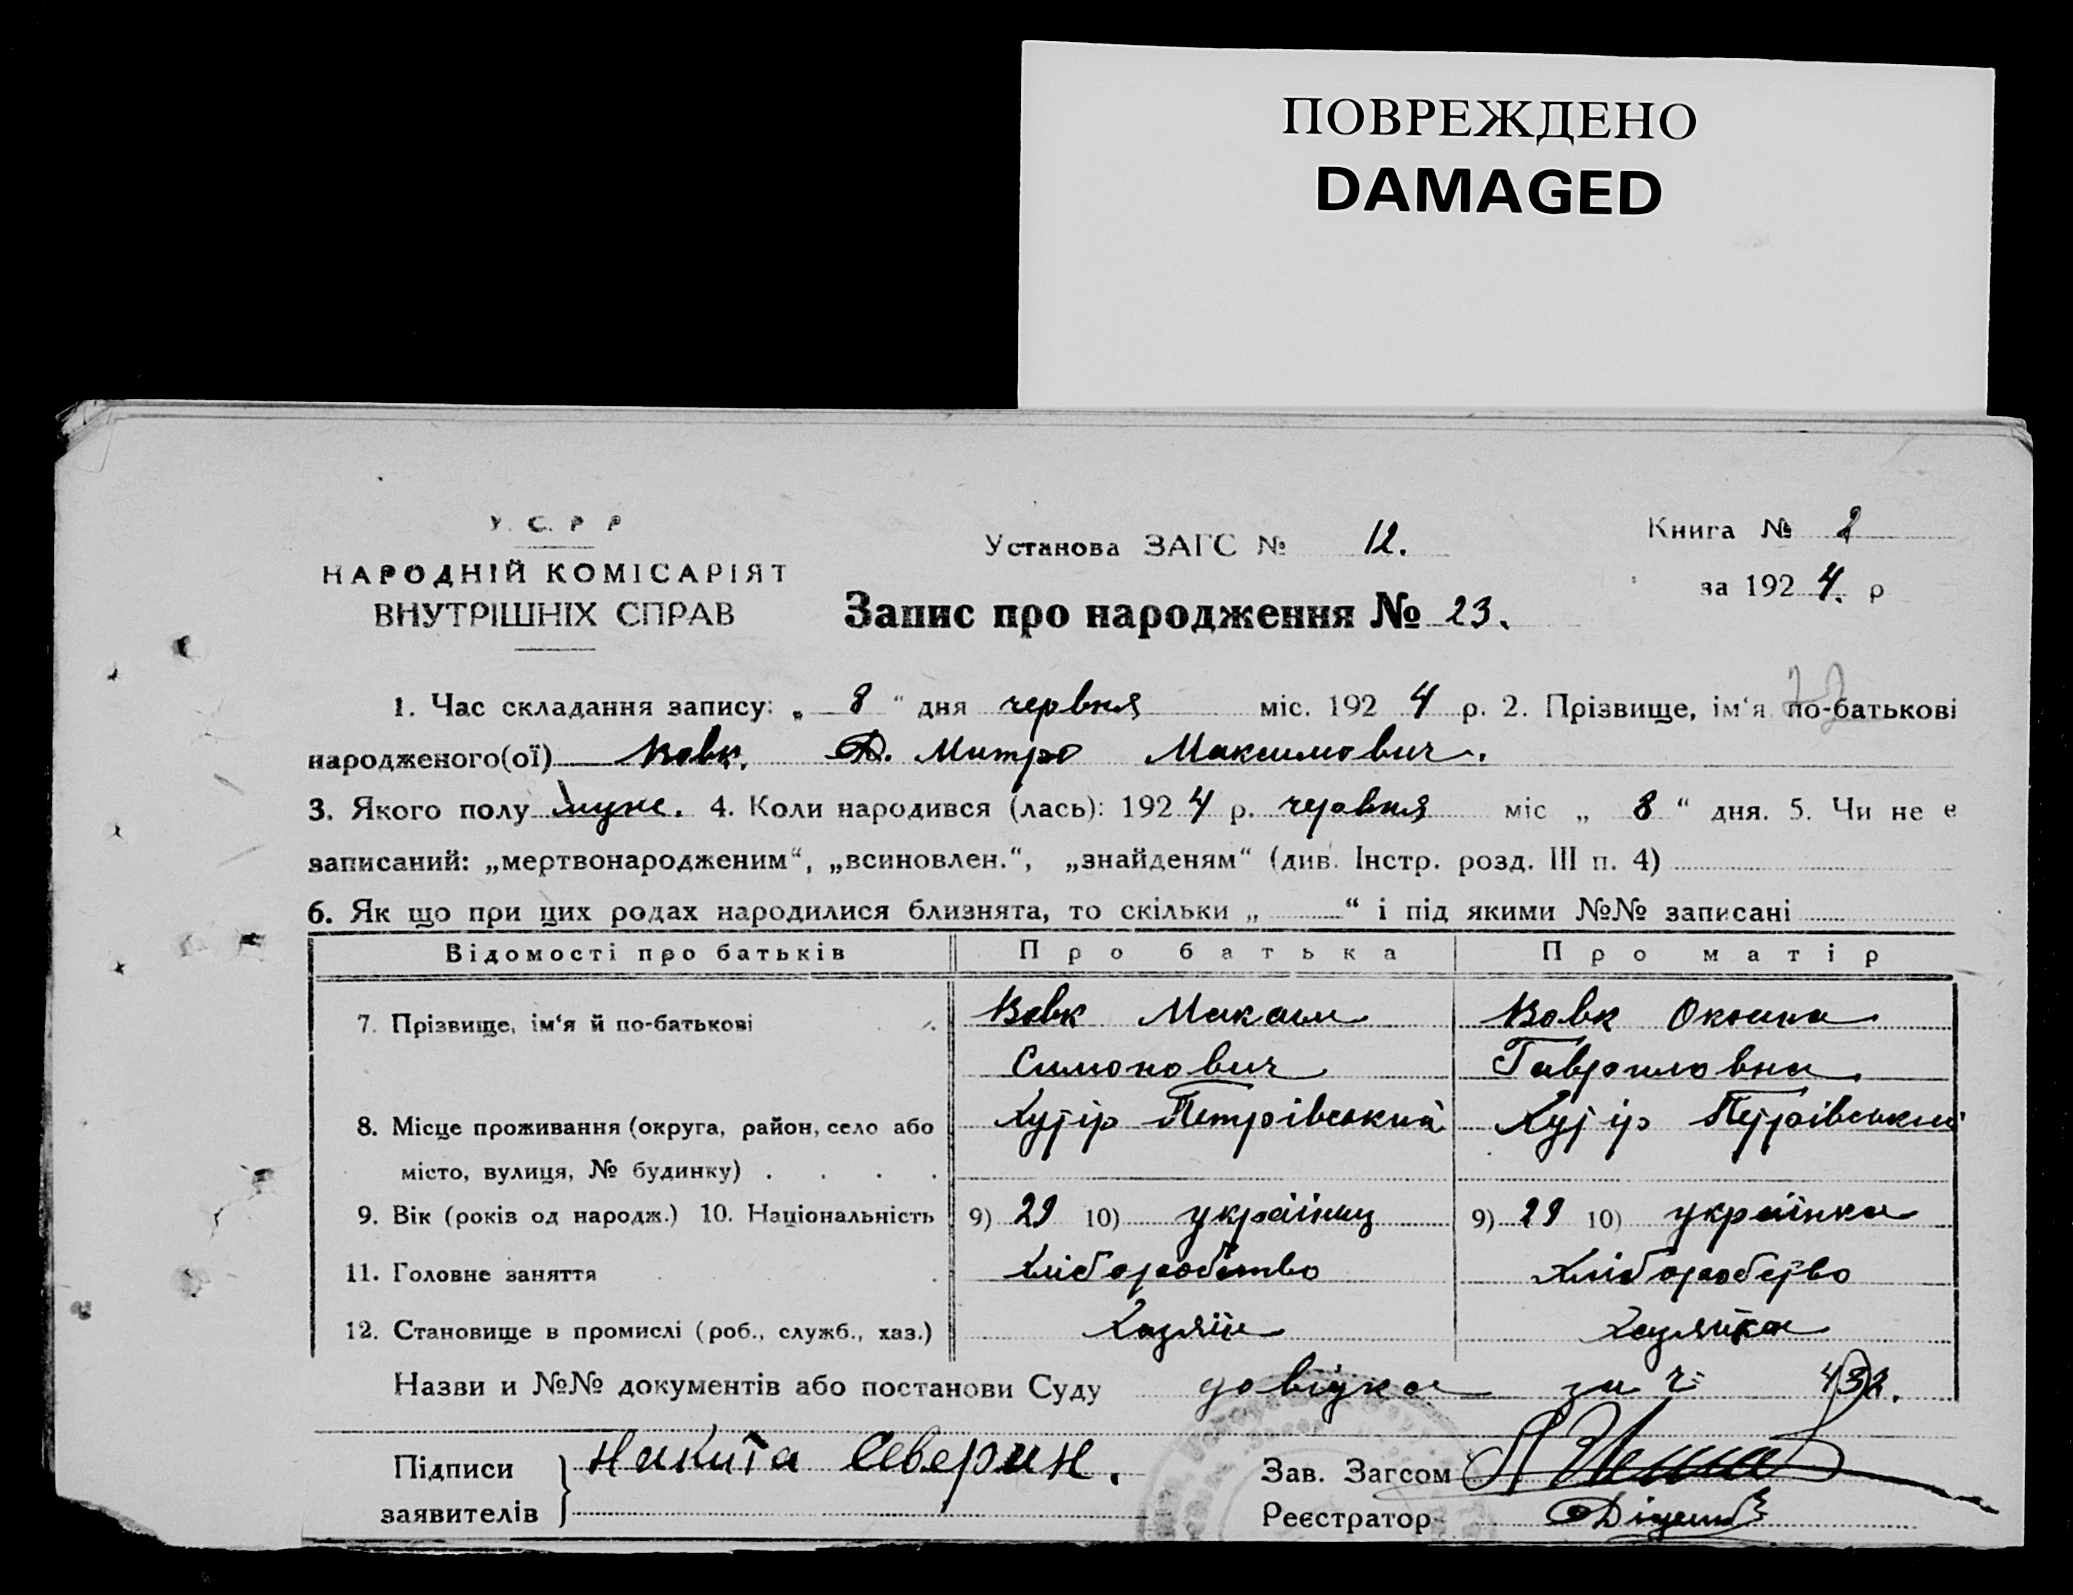 ПОВРЕЖДЕНО
DAMAGED
У. С. Р Р
НАРОДНІЙ КОМІСАРІЯТ
ВНУТРІШНІХ СПРАВ
Установа ЗАГС № 12.
Книга № 2
за 1924. р
Запис про народження № 23.
1. Час складання запису: „ 8 “ дня червня міс. 1924 р. 2. Прізвище, ім‘я по-батькові
народженого(ої) Вовк. Д. Митро Максимович.
3. Якого полу муж. 4. Коли народився (лась): 1924 р. червня міс „ 8 “ дня. 5. Чи не є
записаний: „мертвонародженим“, „всиновлен.“, „знайденям“ (див. Інстр. розд. III п. 4)
6. Як що при цих родах народилися близнята, то скільки „ “ і під якими №№ записані
Відомості про батьків Про батька Про матір
7. Прізвище, ім‘я й по-батькові Вовк Максим Вовк Оксина
Симонович Гавриловна
8. Місце проживання (округа, район, село або Хутір Петрівський Хутір Петрівський
місто, вулиця, № будинку)
9. Вік (років од народж.) 10. Національність 9) 29 10) українец 9) 29 10) українка
11. Головне заняття Хліборобство Хліборобство
12. Становище в промислі (роб., служб., хаз.) Хазяїн Хазяйка
Назви и №№ документів або постанови Суду довідка за ч 432.
Підписи Никита Северин. Зав. Загсом
заявителів Реєстратор